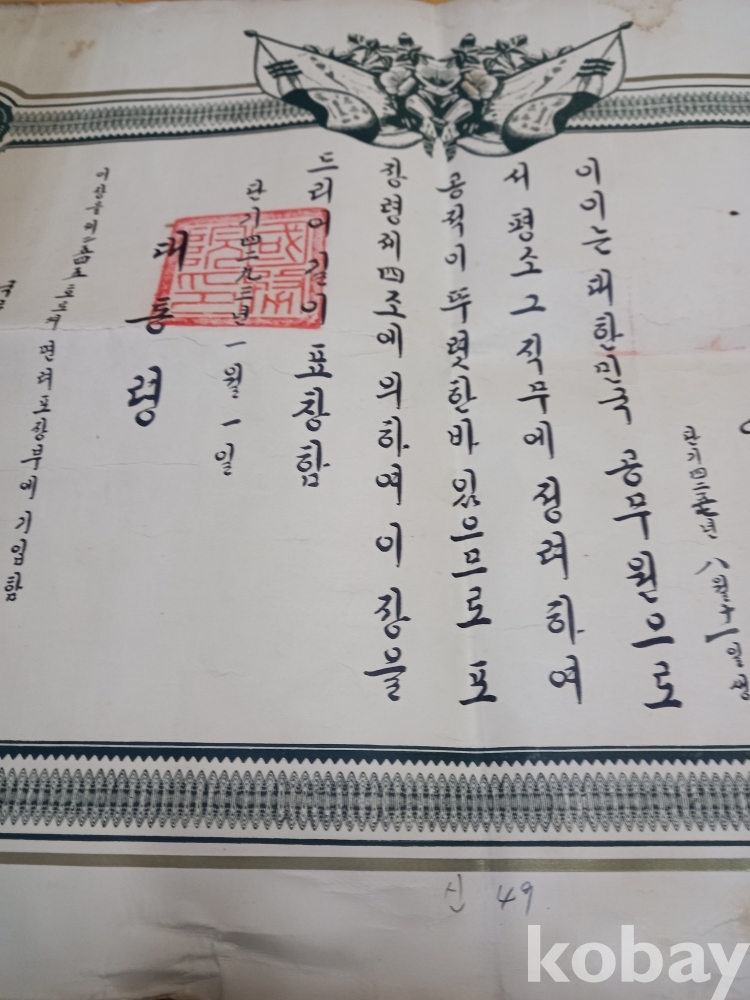 八월十一일생
이이는 대한민국 공무원으로
서 평소 그 직무에 정려하여
공적이 뚜렷한바 있으므로 표
창령제四조에 의하여 이 장을
드리어 길이 표창함
단기四二九三년 一월 一일
대통령
표창부에 기입함
신 49
kobay